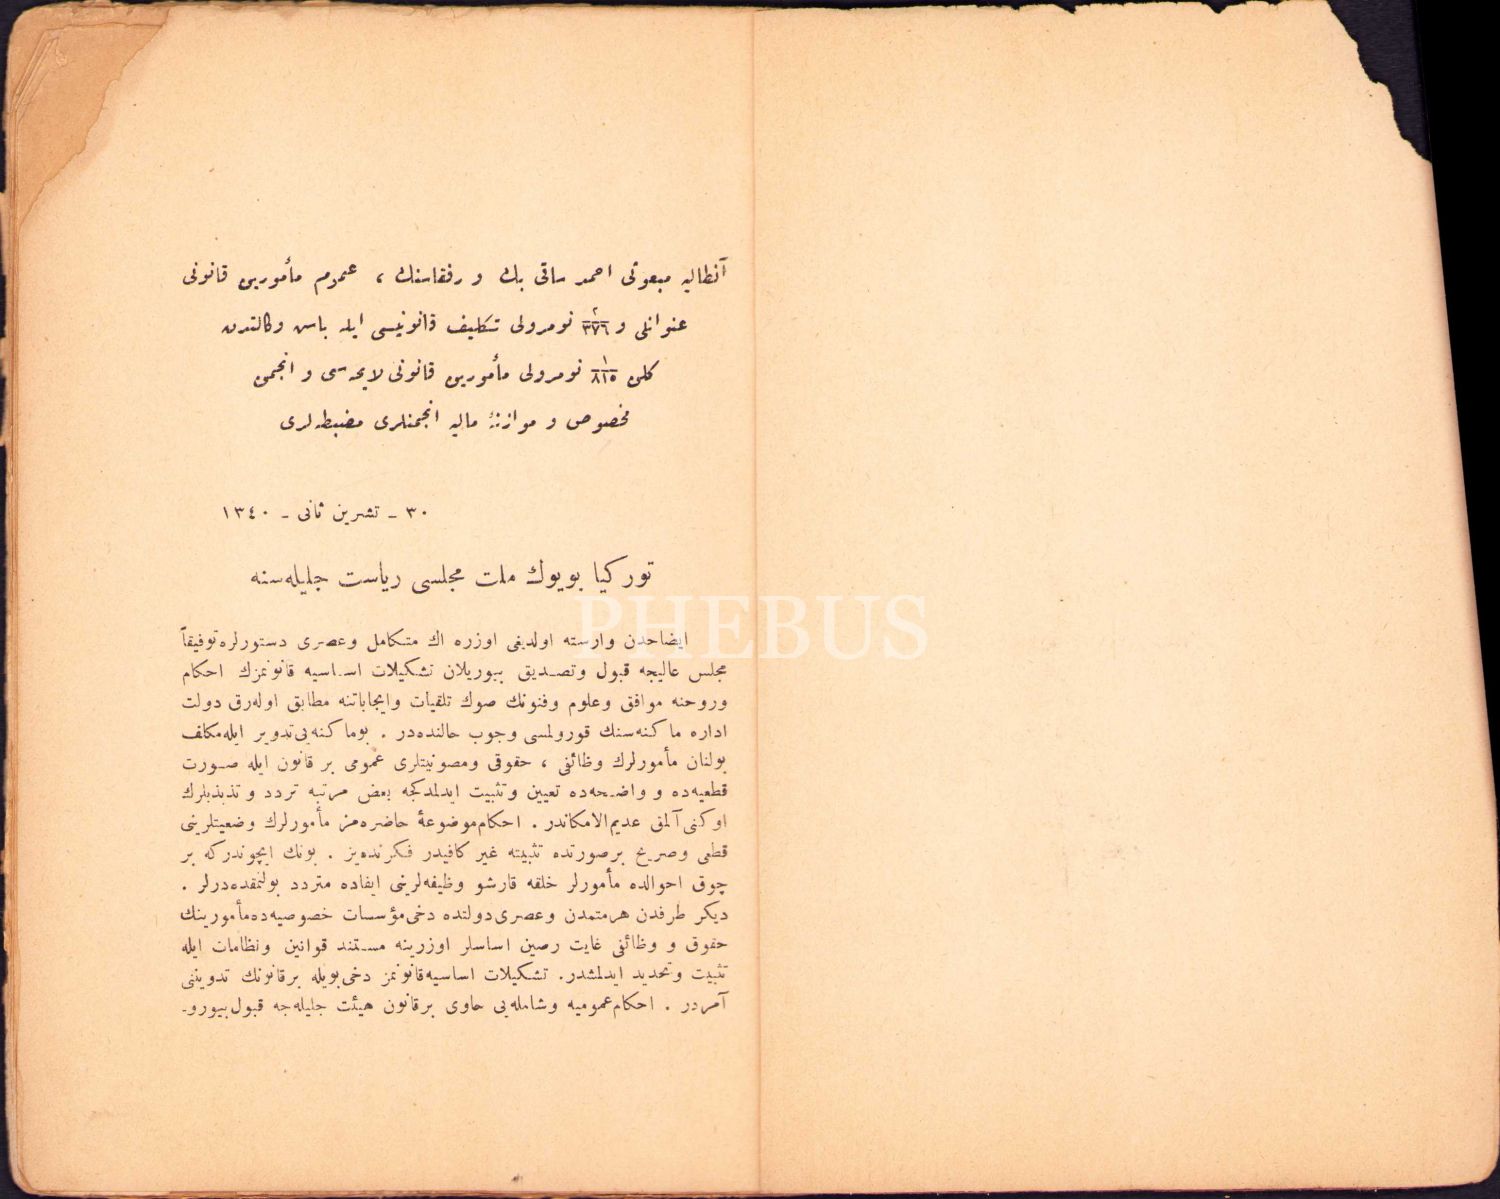 آنطالیه مبعوثی احمد ساقی بك و رفقاسنك ، عموم مأمورین قانونی
عنوانلی و ٢/٣٧٦ نومرولی تكلیف قانونیسی ایله باش وكالتدن
كلن ١/٨١٥ نومرولی مأمورین قانونی لایحه سی و انجمن
مخصوص و موازنهٔ مالیه انجمنلری مضبطه لری
٣٠ ـ تشرین ثانی ـ ١٣٤٠
توركیا بویوك ملت مجلسی ریاست جلیله سنه
ایضاحدن وارسته اولدیغی اوزره اك متكامل وعصری دستورلره توفیقاً
مجلس عالیجه قبول وتصدیق بیوریلان تشكیلات اساسیه قانونمزك احكام
وروحنه موافق وعلوم وفنونك صوك تلقیات وایجاباتنه مطابق اوله رق دولت
اداره ماكنه سنك قورولمسی وجوب حالنده در . بوماكنه یی تدویر ایله مكلف
بولنان مأمورلرك وظائفی ، حقوقی ومصونیتلری عمومی بر قانون ایله صورت
قطعیه ده و واضحه ده تعیین وتثبیت ایدلمدكجه بعض مرتبه تردد و تذبذبلرك
اوكنی آلمق عدیم الامكاندر . احكام موضوعهٔ حاضره مز مأمورلرك وضعیتلرینی
قطعی وصریح برصورتده تثبیته غیر كافیدر فكرنده یز . بونك ایچوندركه بر
چوق احوالده مأمورلر خلقه قارشو وظیفه لرینی ایفاده متردد بولنمقده درلر .
دیكر طرفدن هرمتمدن وعصری دولتده دخی مؤسسات خصوصیه ده مأمورینك
حقوق و وظائفی غایت رصین اساسلر اوزرینه مستند قوانین ونظامات ایله
تثبیت وتحدید ایدلمشدر. تشكیلات اساسیه قانونمز دخی بویله برقانونك تدوینی
آمردر . احكام عمومیه وشامله یی حاوی برقانون هیئت جلیله جه قبول بیورو۔
PHEBUS